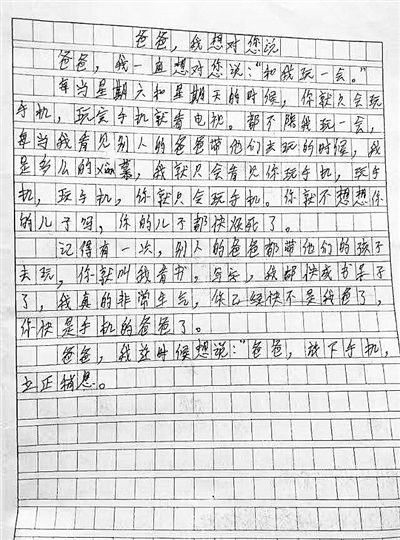 爸爸，我想对您说
爸爸，我一直想对您说：“和我玩一会。”
每当星期六和星期天的时候，你就只会玩
手机，玩完手机就看电视。都不陪我玩一会，
每当我看见别人的爸爸带他们去玩的时候，我
是多么的xian慕，我就只会看见你玩手机，玩手
机，玩手机，你就只会玩手机。你就不想想你
的儿子吗，你的儿子都快没死了。
记得有一次，别人的爸爸都带他们的孩子
去玩，你就叫我看书，写字，我都快成书呆子
了，我真的非常生气，你已经快不是我爸了，
你快是手机的爸爸了。
爸爸，我这时候想说：“爸爸，放下手机，
立正稍息。